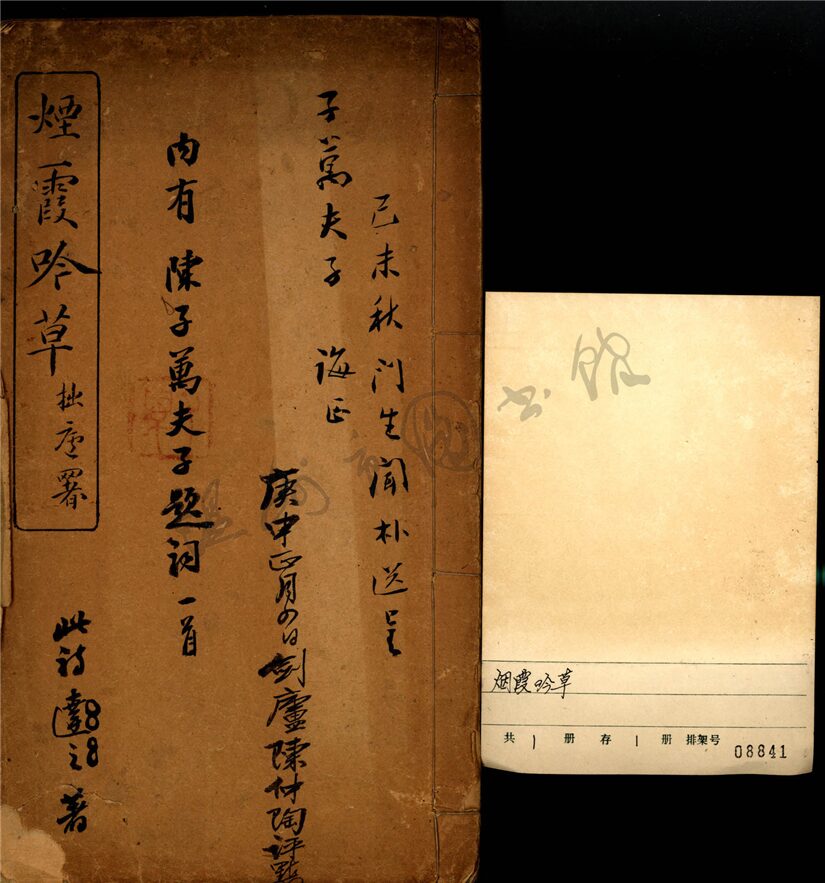 己未秋門生聞朴送呈
子萬夫子 誨正
庚申正月四日劍廬陳仲陶評點
內有 陳子萬夫子題詞一首
煙霞吟草
拙廬署
此詩
之著
88
烟霞吟草
共 1 册 存 1 册 排架号
08841
书馆